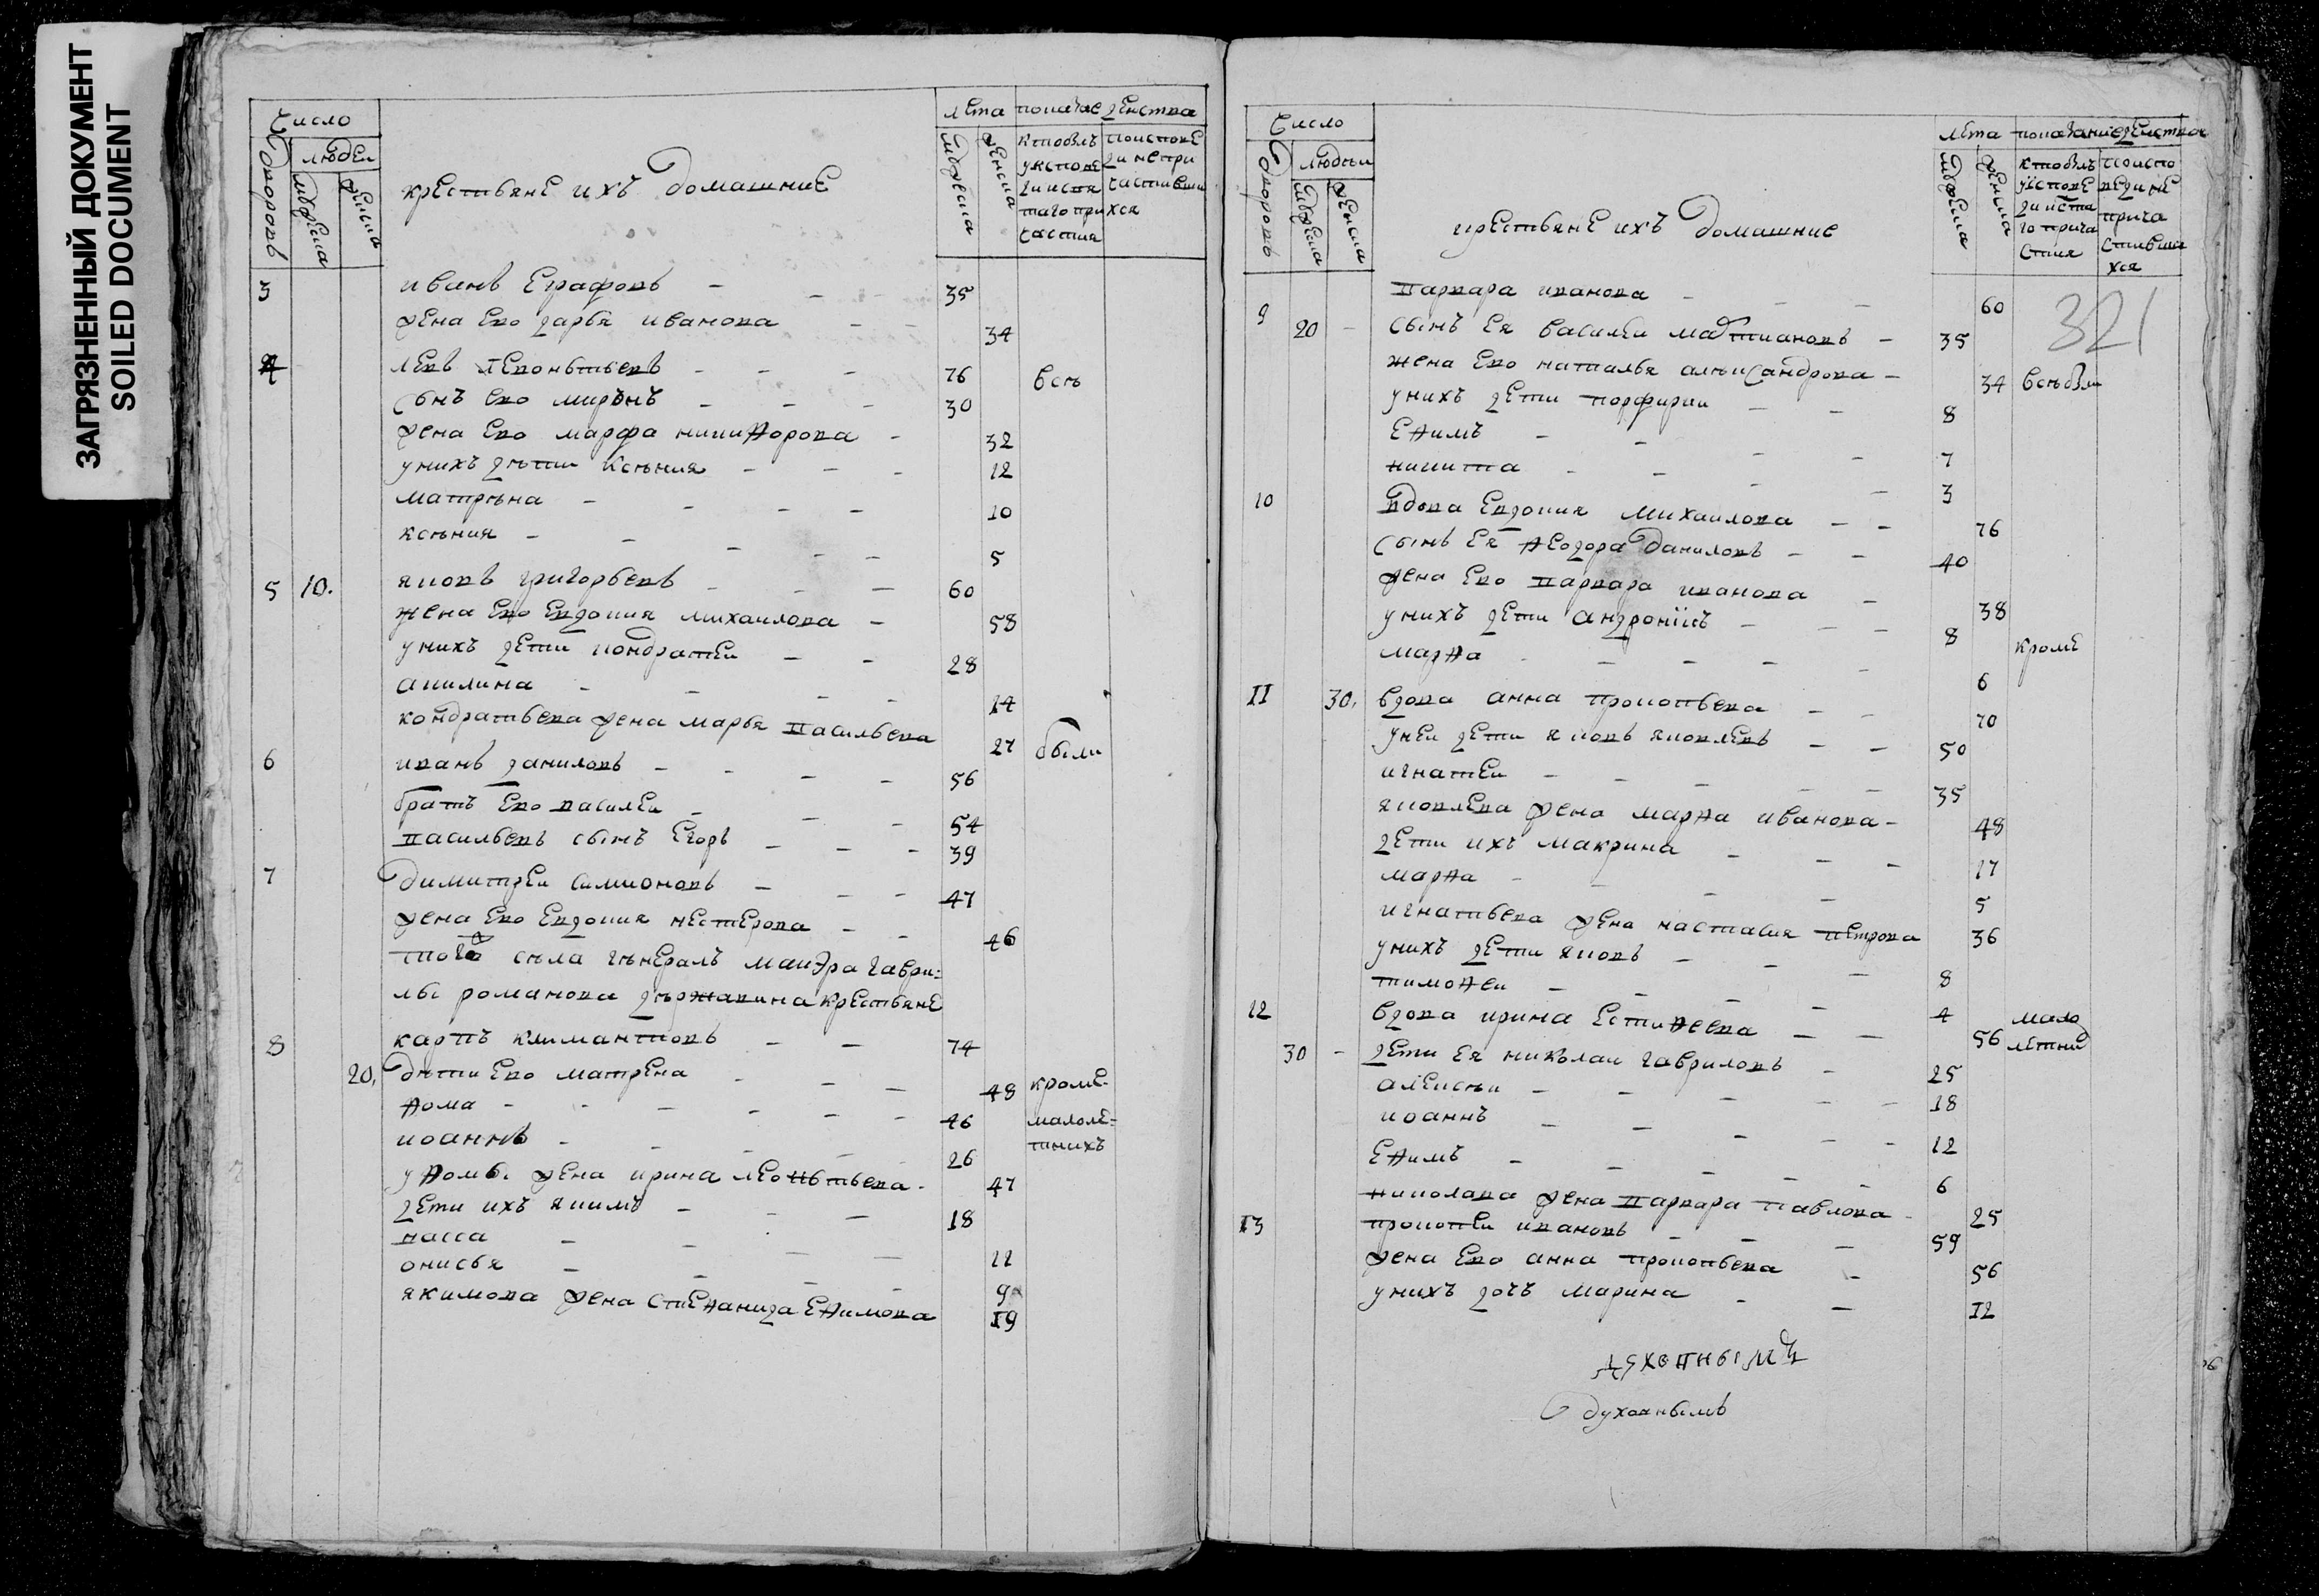 ЗАГРЯЗНЕННЫЙ ДОКУМЕНТ
SOILED DOCUMENT
Число
дворовъ
людеи
мужеска
женска
крестьяне ихъ домашние
лета
мужеска
женска
показание действа
кто былъ
у исповеди и святаго причастия
по исповеди не причастившихся
3 иванъ Ерафовъ 35
жена Ево дарья иванова 34
4 левъ леоньтьевъ 76 всъ
сынъ ево миронъ 30
жена Ево марфа никифорова 32
у нихъ дъти Ксъния 12
матръна 10
ксъния 5
5 10. яковъ григорьевъ 60
жена Ево Евдокия михаилова 58
у нихъ дети кондратеи 28
акилина 14
кондратьева жена марья васильева 27 были
6 иванъ даниловъ 56
братъ Ево василеи 54
васильевъ сынъ Егоръ 39
7 димитреи симионовъ 47
жена Ево Евдокия нестерова 46
того съла гънералъ маиэра гаври=
лы романова държавина крестьяне
8 карпъ климантовъ 74
20. дъти Ево матрена 48 кроме
фома 46 малоле=
иоаннъ 26 тнихъ
у фомы жена ирина леоньтьева 47
дети ихъ якимъ 18
васса 11
онисья 9
якимова жена стефанида Ефимова 19
Число
дворовъ
людъи
мужеска
женска
крестьяне ихъ домашние
лета
мужеска
женска
показание действа
кто былъ у исповеди и святаго причастия
по исповеди не причастившихся
321
9 варвара иванова 60
20 сынъ Ея василеи мартиановъ 35
жена Ево наталья алъксандрова 34 всъ были
у нихъ дети порфирии 8
Ефимъ 7
никита 3
10 вдова Евдокия михаилова 76
сынъ Ея феодоръ даниловъ 40
жена Ево варвара иванова 38
у нихъ дети андроникъ 8 кроме
марфа 6
11 30. вдова анна прокопьева 70
у неи дети яковъ яковлевъ 50
игнатеи 35
яковлева жена марфа иванова 48
дети ихъ макрина 17
марфа 5
игнатьева жена настасия петрова 36
у нихъ дети яковъ 8
тимофеи 4
12 вдова ирина Естифеева 56 мало
30 дети Ея николаи гавриловъ 25 летнихъ
алексъи 18
иоаннъ 12
Ефимъ 6
николава жена варвара павлова 25
13 прокопеи ивановъ 59
жена Ево анна прокопьева 56
у нихъ дочъ марина 12
духовнымъ